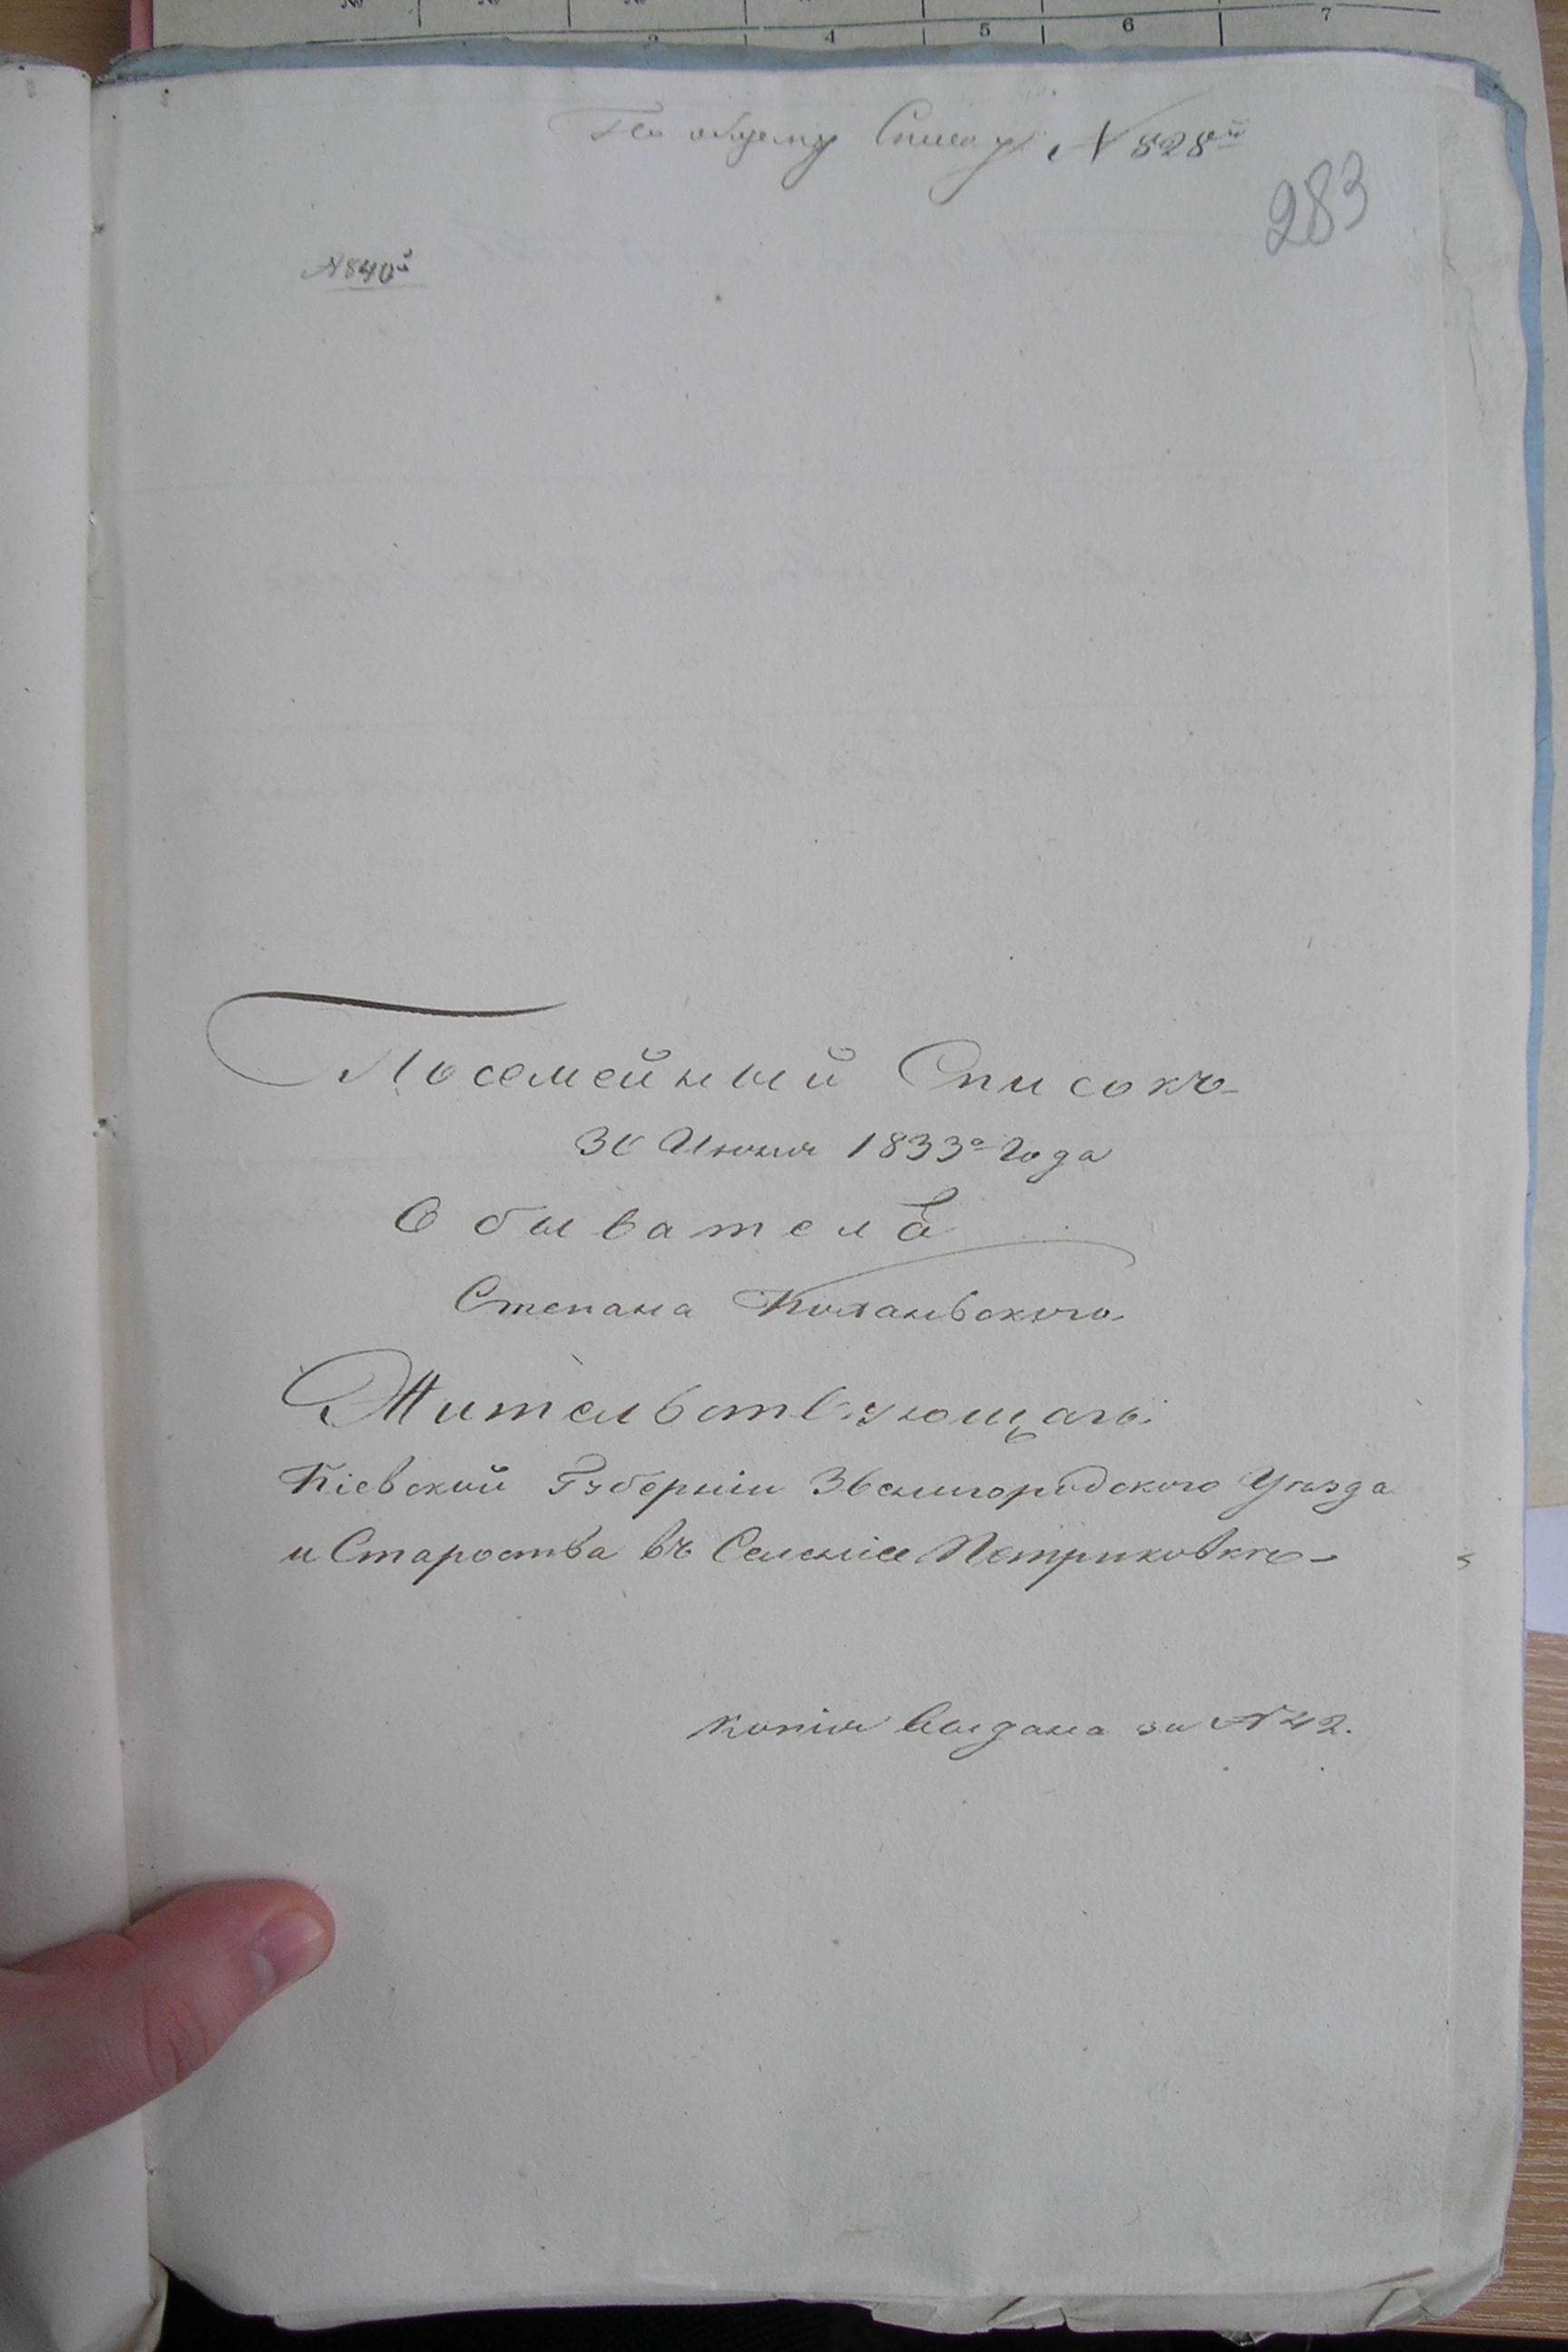 3 4 5 6 7
По общему Списку № 828й
283
№ 840й
Посемейный Списокъ
30 Июня 1833го Года
Обывателя
Степана Коханьвского
Жительствующаго
Кіевской Губерніи Звенигородского Уѣзда
и Староства въ Селеніи Петриковкѣ
Копія выдана за № 42.